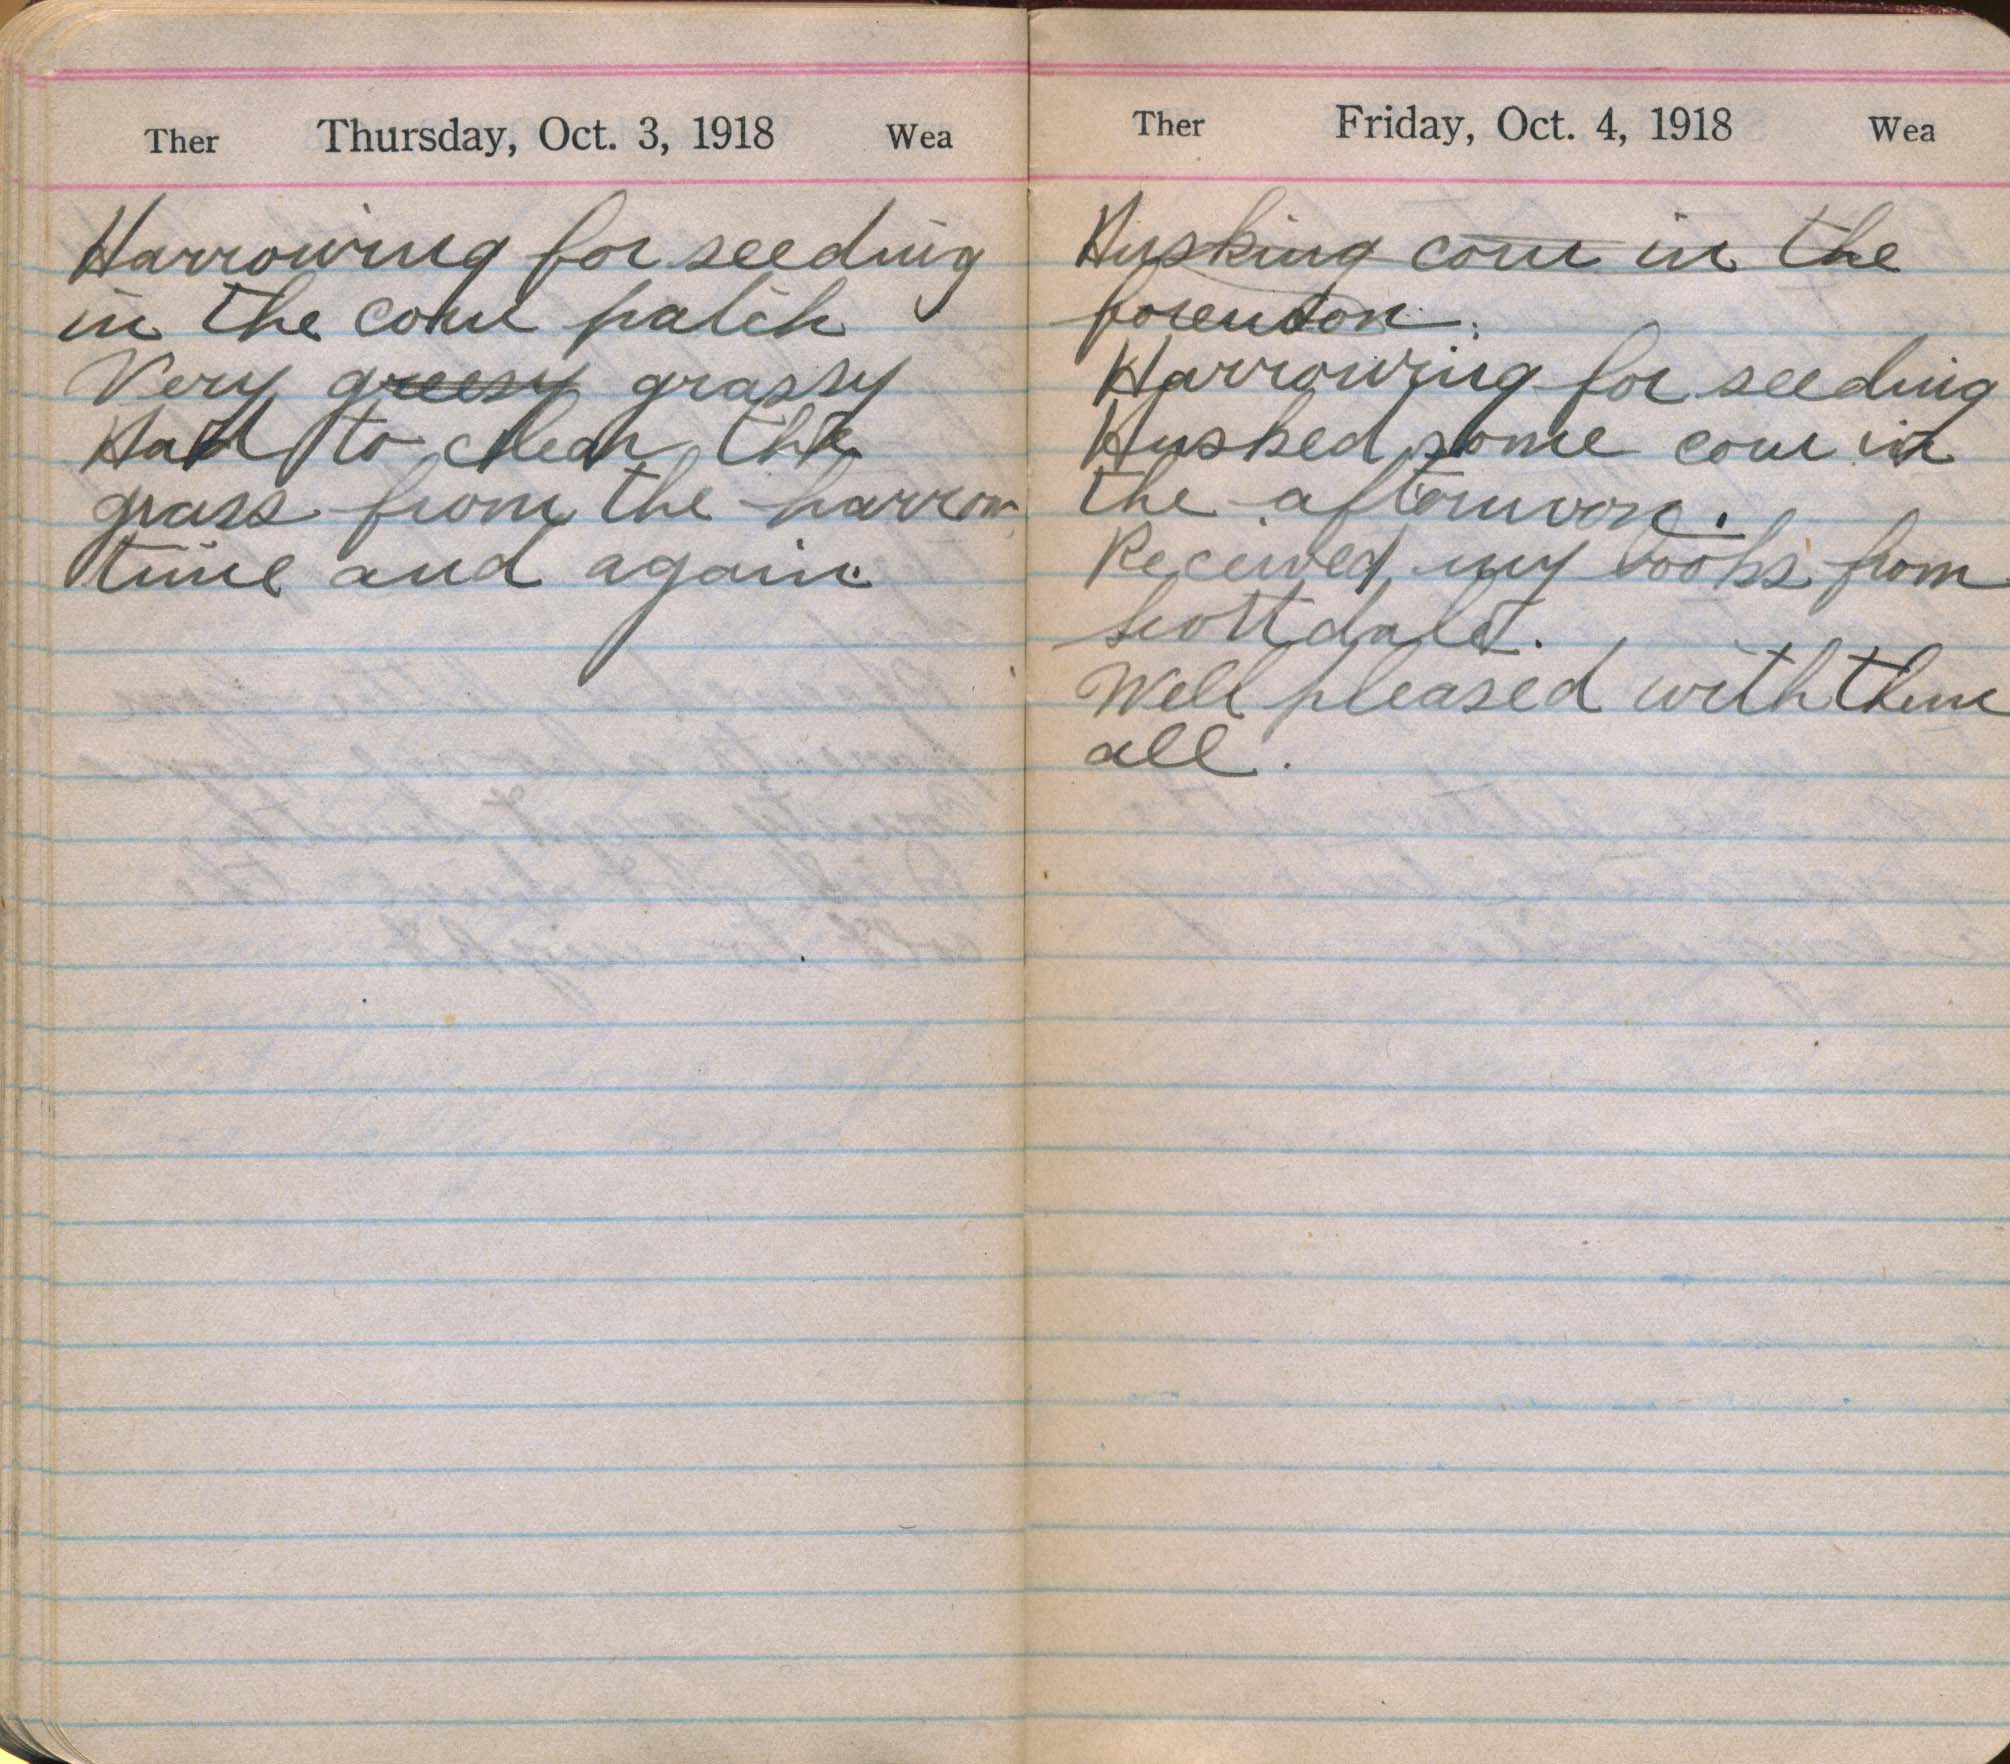 Ther Thursday, Oct. 3, 1918 Wea
Harrowing for seeding
in the corn patch
Very greesy grassy
Had to clean the
grass from the harrow
time and again.
Ther Friday, Oct. 4, 1918 Wea
Husking corn in the
forenoon.
Harrowing for seeding
Husked some corn in
the afternoon.
Received my books from
Scottdale.
Well pleased with them
all.